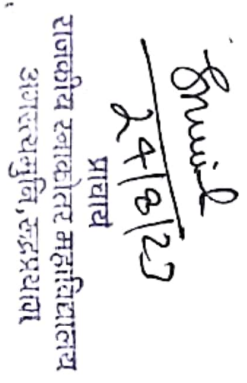 24/8/23
प्राचार्य
राजकीय स्नातकोत्तर महाविद्यालय
अगस्त्यमुनि, रुद्रप्रयाग